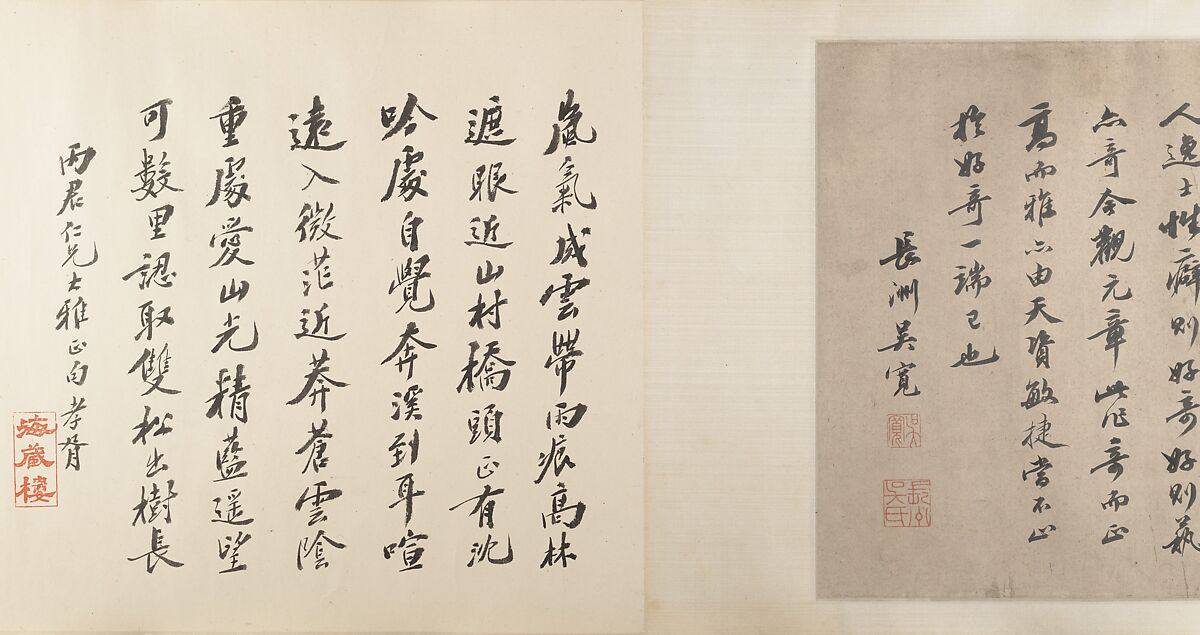 人逸士性癖則好奇好則蓺
亦奇今觀元章此作奇而正
高而雅亦由天資敏捷當不止
於好奇一端已也
長洲吳寬
吳寬
長洲吳氏
嵐氣成雲帶雨痕高林
遮眼近山村橋頭正有沈
吟處自覺奔溪到耳喧
遠入微茫近莽蒼雲陰
重處愛山光精藍遥望
可數里認取雙松出樹長
丙君仁兄大雅正句孝胥
海藏樓